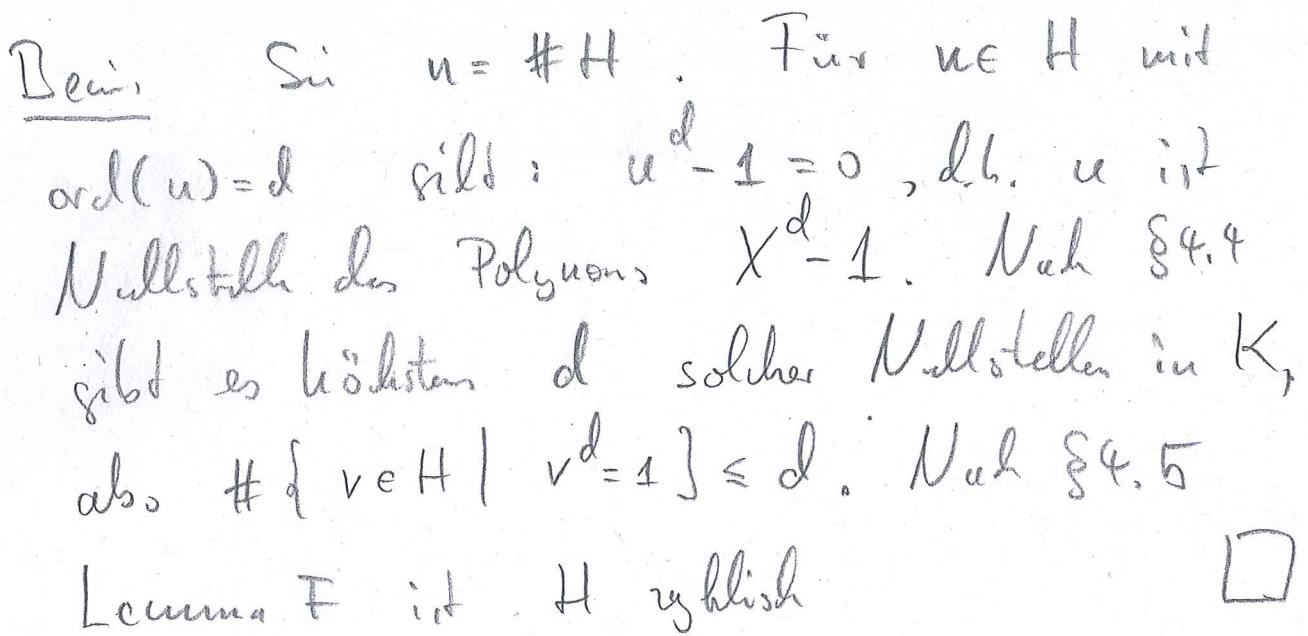 Bew: Sei n = #H. Für u∈ H mit
ord(u)=d gilt: u^d - 1 = 0, d.h. u ist
Nullstelle des Polynoms X^d - 1. Nach §4.4
gibt es höchstens d solcher Nullstellen in K,
also #{v∈H | v^d=1} ≤ d. Nach §4.5
Lemma F ist H zyklisch □